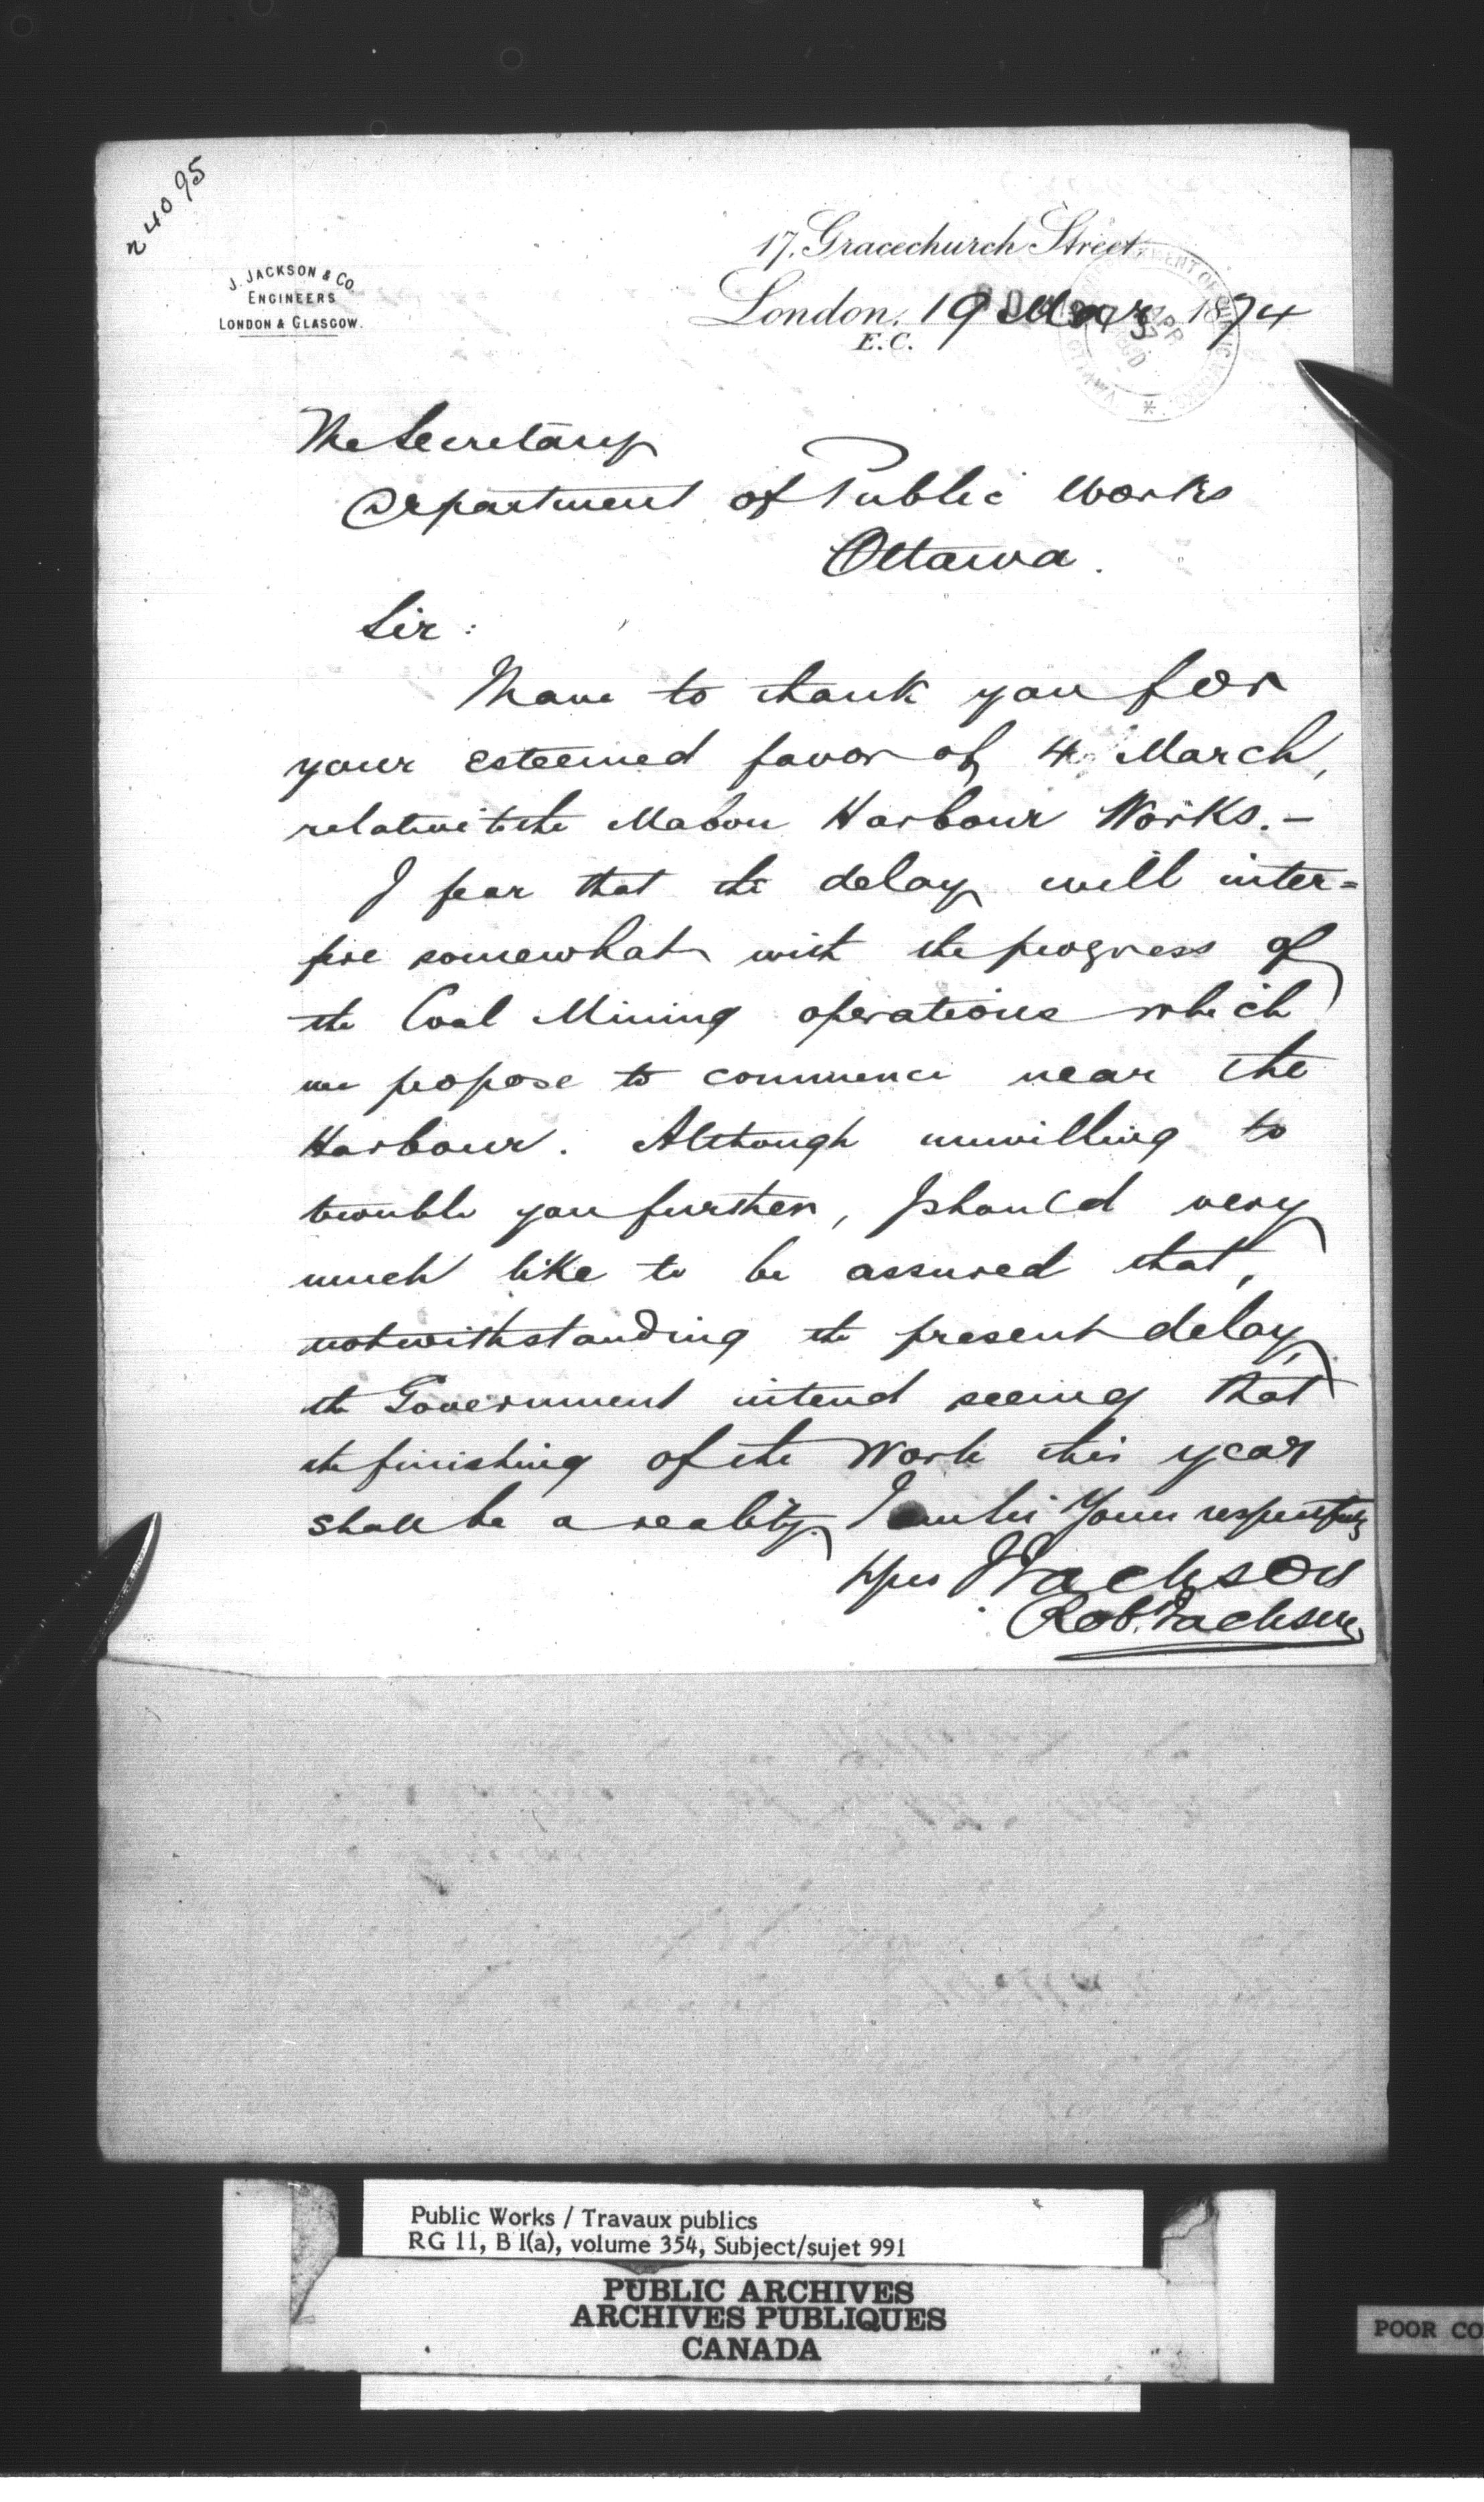 24095
J. JACKSON & CO
ENGINEERS
LONDON & GLASGOW.
17, Gracechurch Street
London, 19 Mar 1874
E.C.
The Secretary
Department of Public Works
Ottawa.
Sir:
I have to thank you for
your esteemed favor of 4 March,
relative to the Mabou Harbour Works.-
I fear that the delay will inter=
fere somewhat with the progress of
the Coal Mining operations which
we propose to commence near the
Harbour. Although unwilling to
trouble you further, I should very
much like to be assured that,
notwithstanding the present delay,
the Government intend seeing that
the finishing of the Work this year
shall be a reality. I am Sir Yours respectfully
J Jackson
Rob. Jackson
Public Works / Travaux publics
RG 11, B 1(a), volume 354, Subject/sujet 991
PUBLIC ARCHIVES
ARCHIVES PUBLIQUES
CANADA
POOR CO